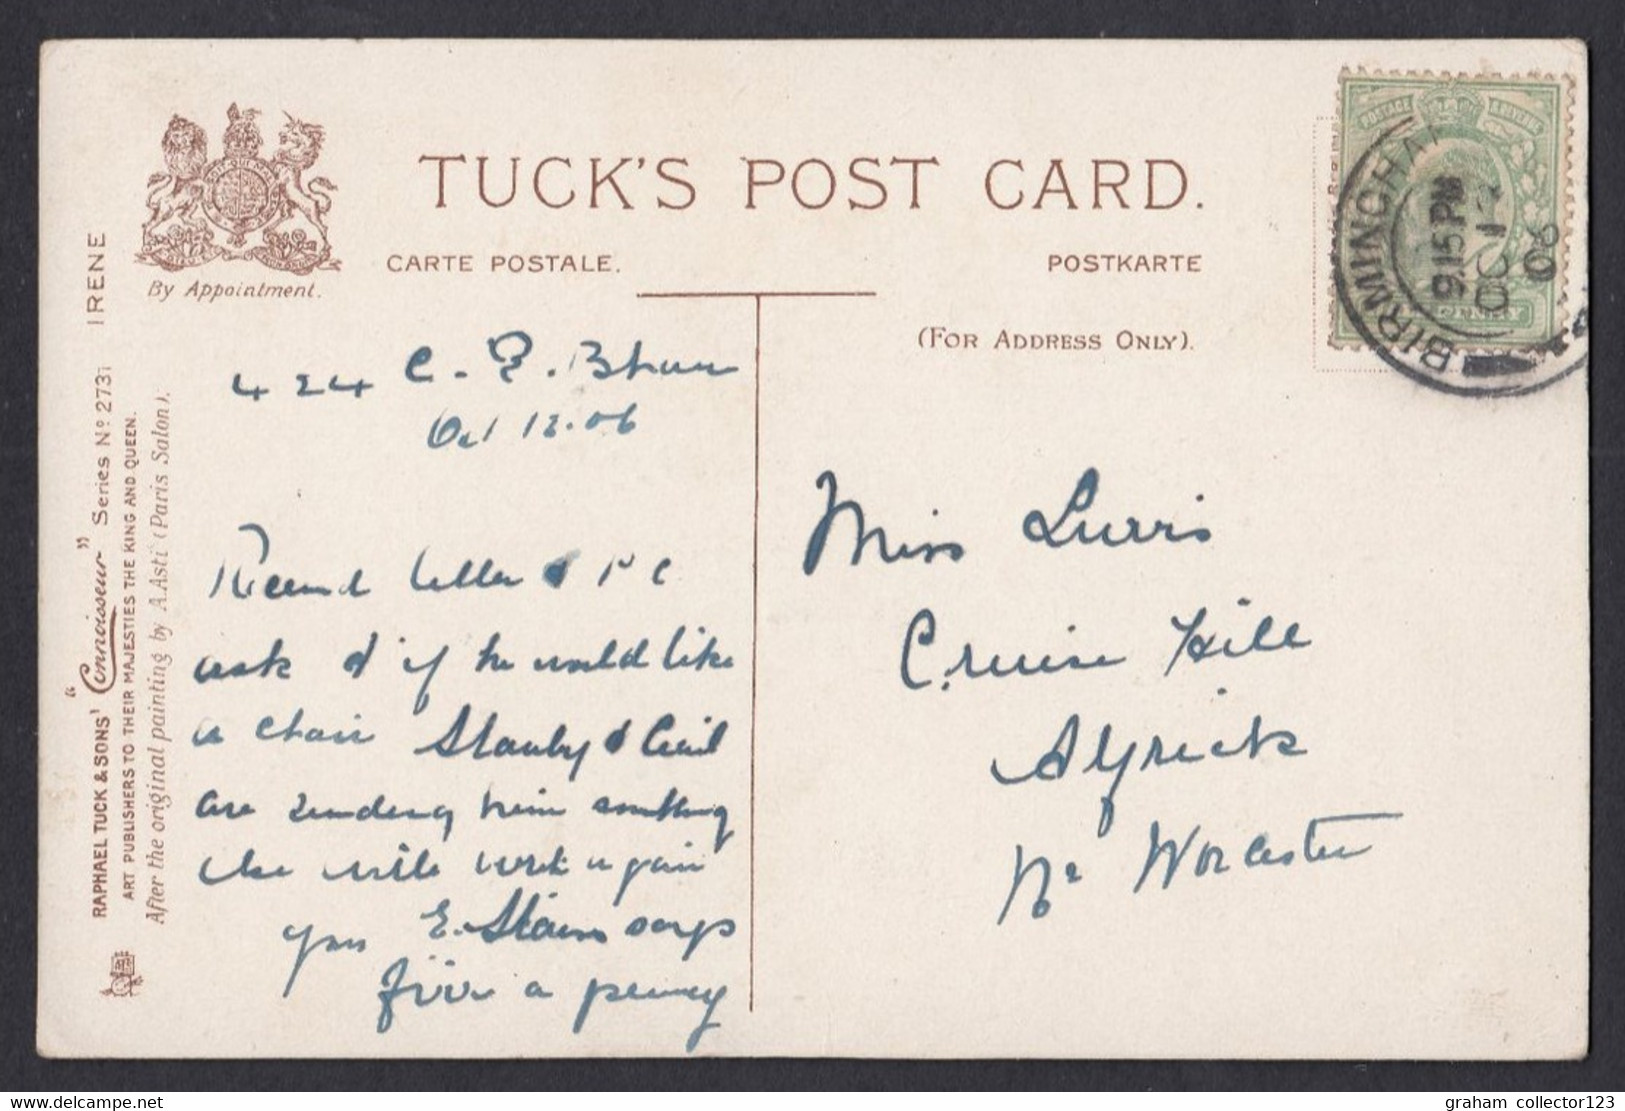 TUCK'S POST CARD.
CARTE POSTALE.
POSTKARTE
(FOR ADDRESS ONLY).
By Appointment.
RAPHAEL TUCK & SONS' "Connoisseur" Series No 2731 IRENE
ART PUBLISHERS TO THEIR MAJESTIES THE KING AND QUEEN.
After the original painting by A.Asti (Paris Salon).
POSTAGE & REVENUE
BIRMINGHA
9.15 PM
OC 12
06
424 C. E. B'ham
Oct 12.06
Received letter & P C
ask if he would like
a chair Stanley & Cecil
are sending him something
else will write again
yrs E. says
a penny
Miss
Hill
Alfrick
Nr Worcester
graham collector123